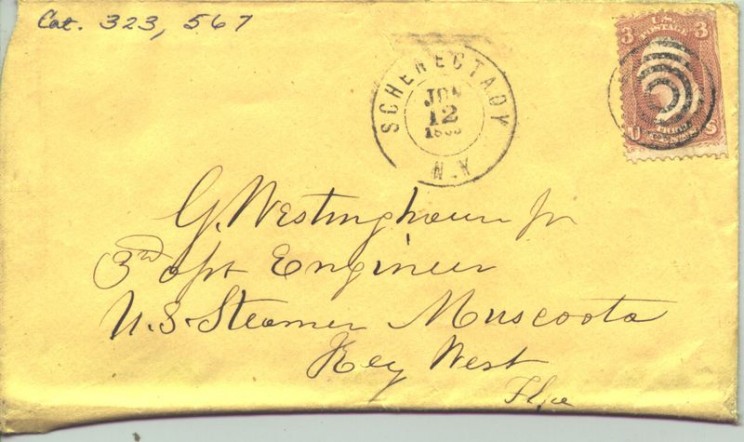 Cat. 323, 567
SCHENECTADY
JUN
12
N.Y
3 U.S. 3
POSTAGE
G. Westinghouse Jr
3rd asst Engineer
U.S. Steamer Muscoota
Key West
Fla